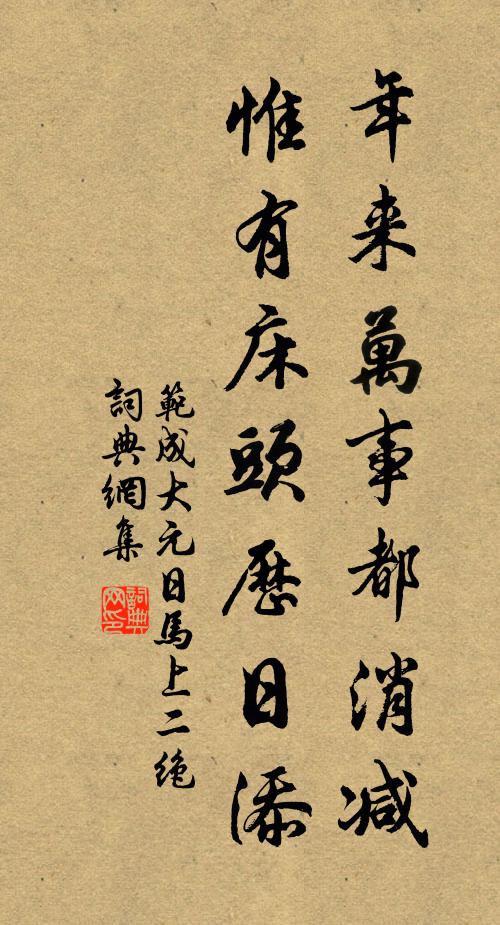 年来萬事都消减
惟有床頭歷日添
範成大元日馬上二絶
詞典網集
詞典网印